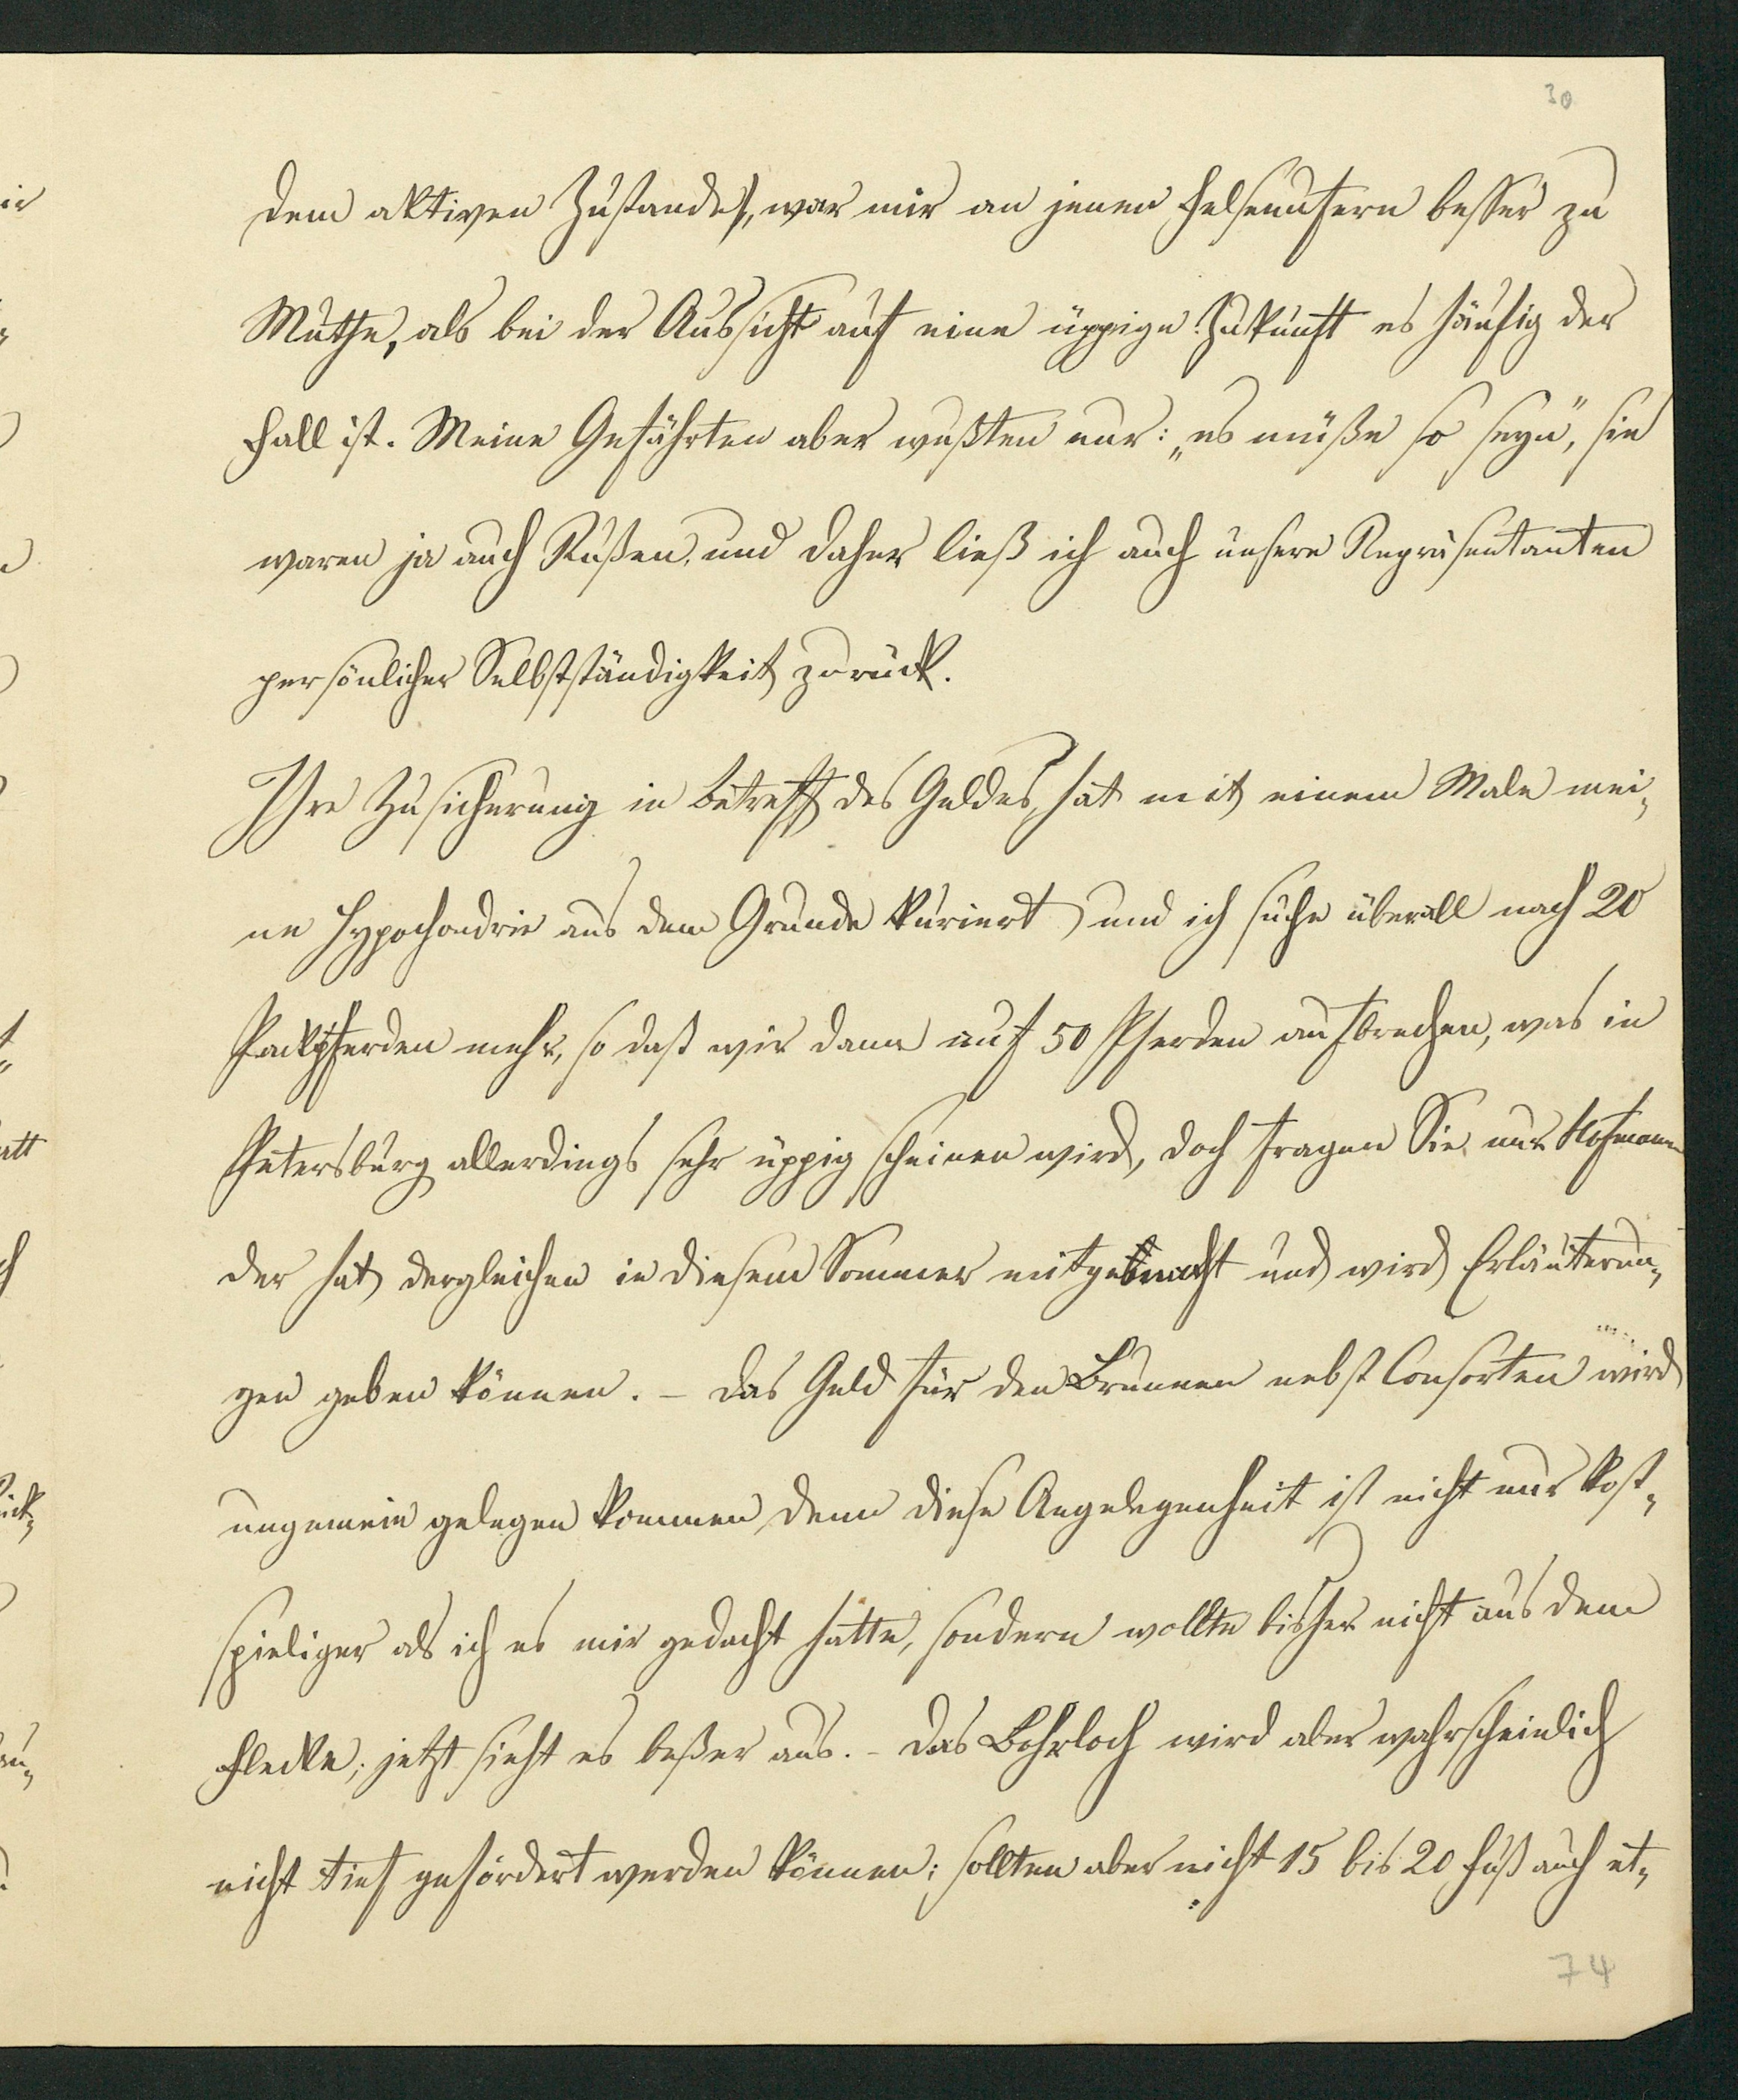 30
dem aktiven Zustande), war mir an jenen Felsenufern besser zu
Muthe, als bei der Aussicht auf eine üppige Zukunft es häufig der
Fall ist. Meine Gefährten aber wußten nur: „es müße so seyn", sie
waren ja auch Rußen, und daher ließ ich auch unsere Repräsentanten
persönlicher Selbstständigkeit zurück.
Ihre Zusicherung in Betreff des Geldes, hat mit einem Male mei-
ne Hypochondrie aus dem Grunde kuriert und ich suche überall nach 20
Packpferden mehr, so daß wir dann auf 50 Pferden aufbrechen, was in
Petersburg allerdings sehr üppig scheinen wird, doch fragen Sie nur Hofmann
der hat dergleichen in diesem Sommer mitgemacht und wird Erläuterun-
gen geben können. – Das Geld für den Brunnen nebst Consorten wird
ungemein gelegen kommen denn diese Angelegenheit ist nicht nur kost-
spieliger als ich es mir gedacht hatte, sondern wollte bisher nicht aus dem
Flecke; jetzt sieht es beßer aus. – Das Bohrloch wird aber wahrscheinlich
nicht tief gefördert werden können; sollten aber nicht 15 bis 20 Fuß auch et-
74